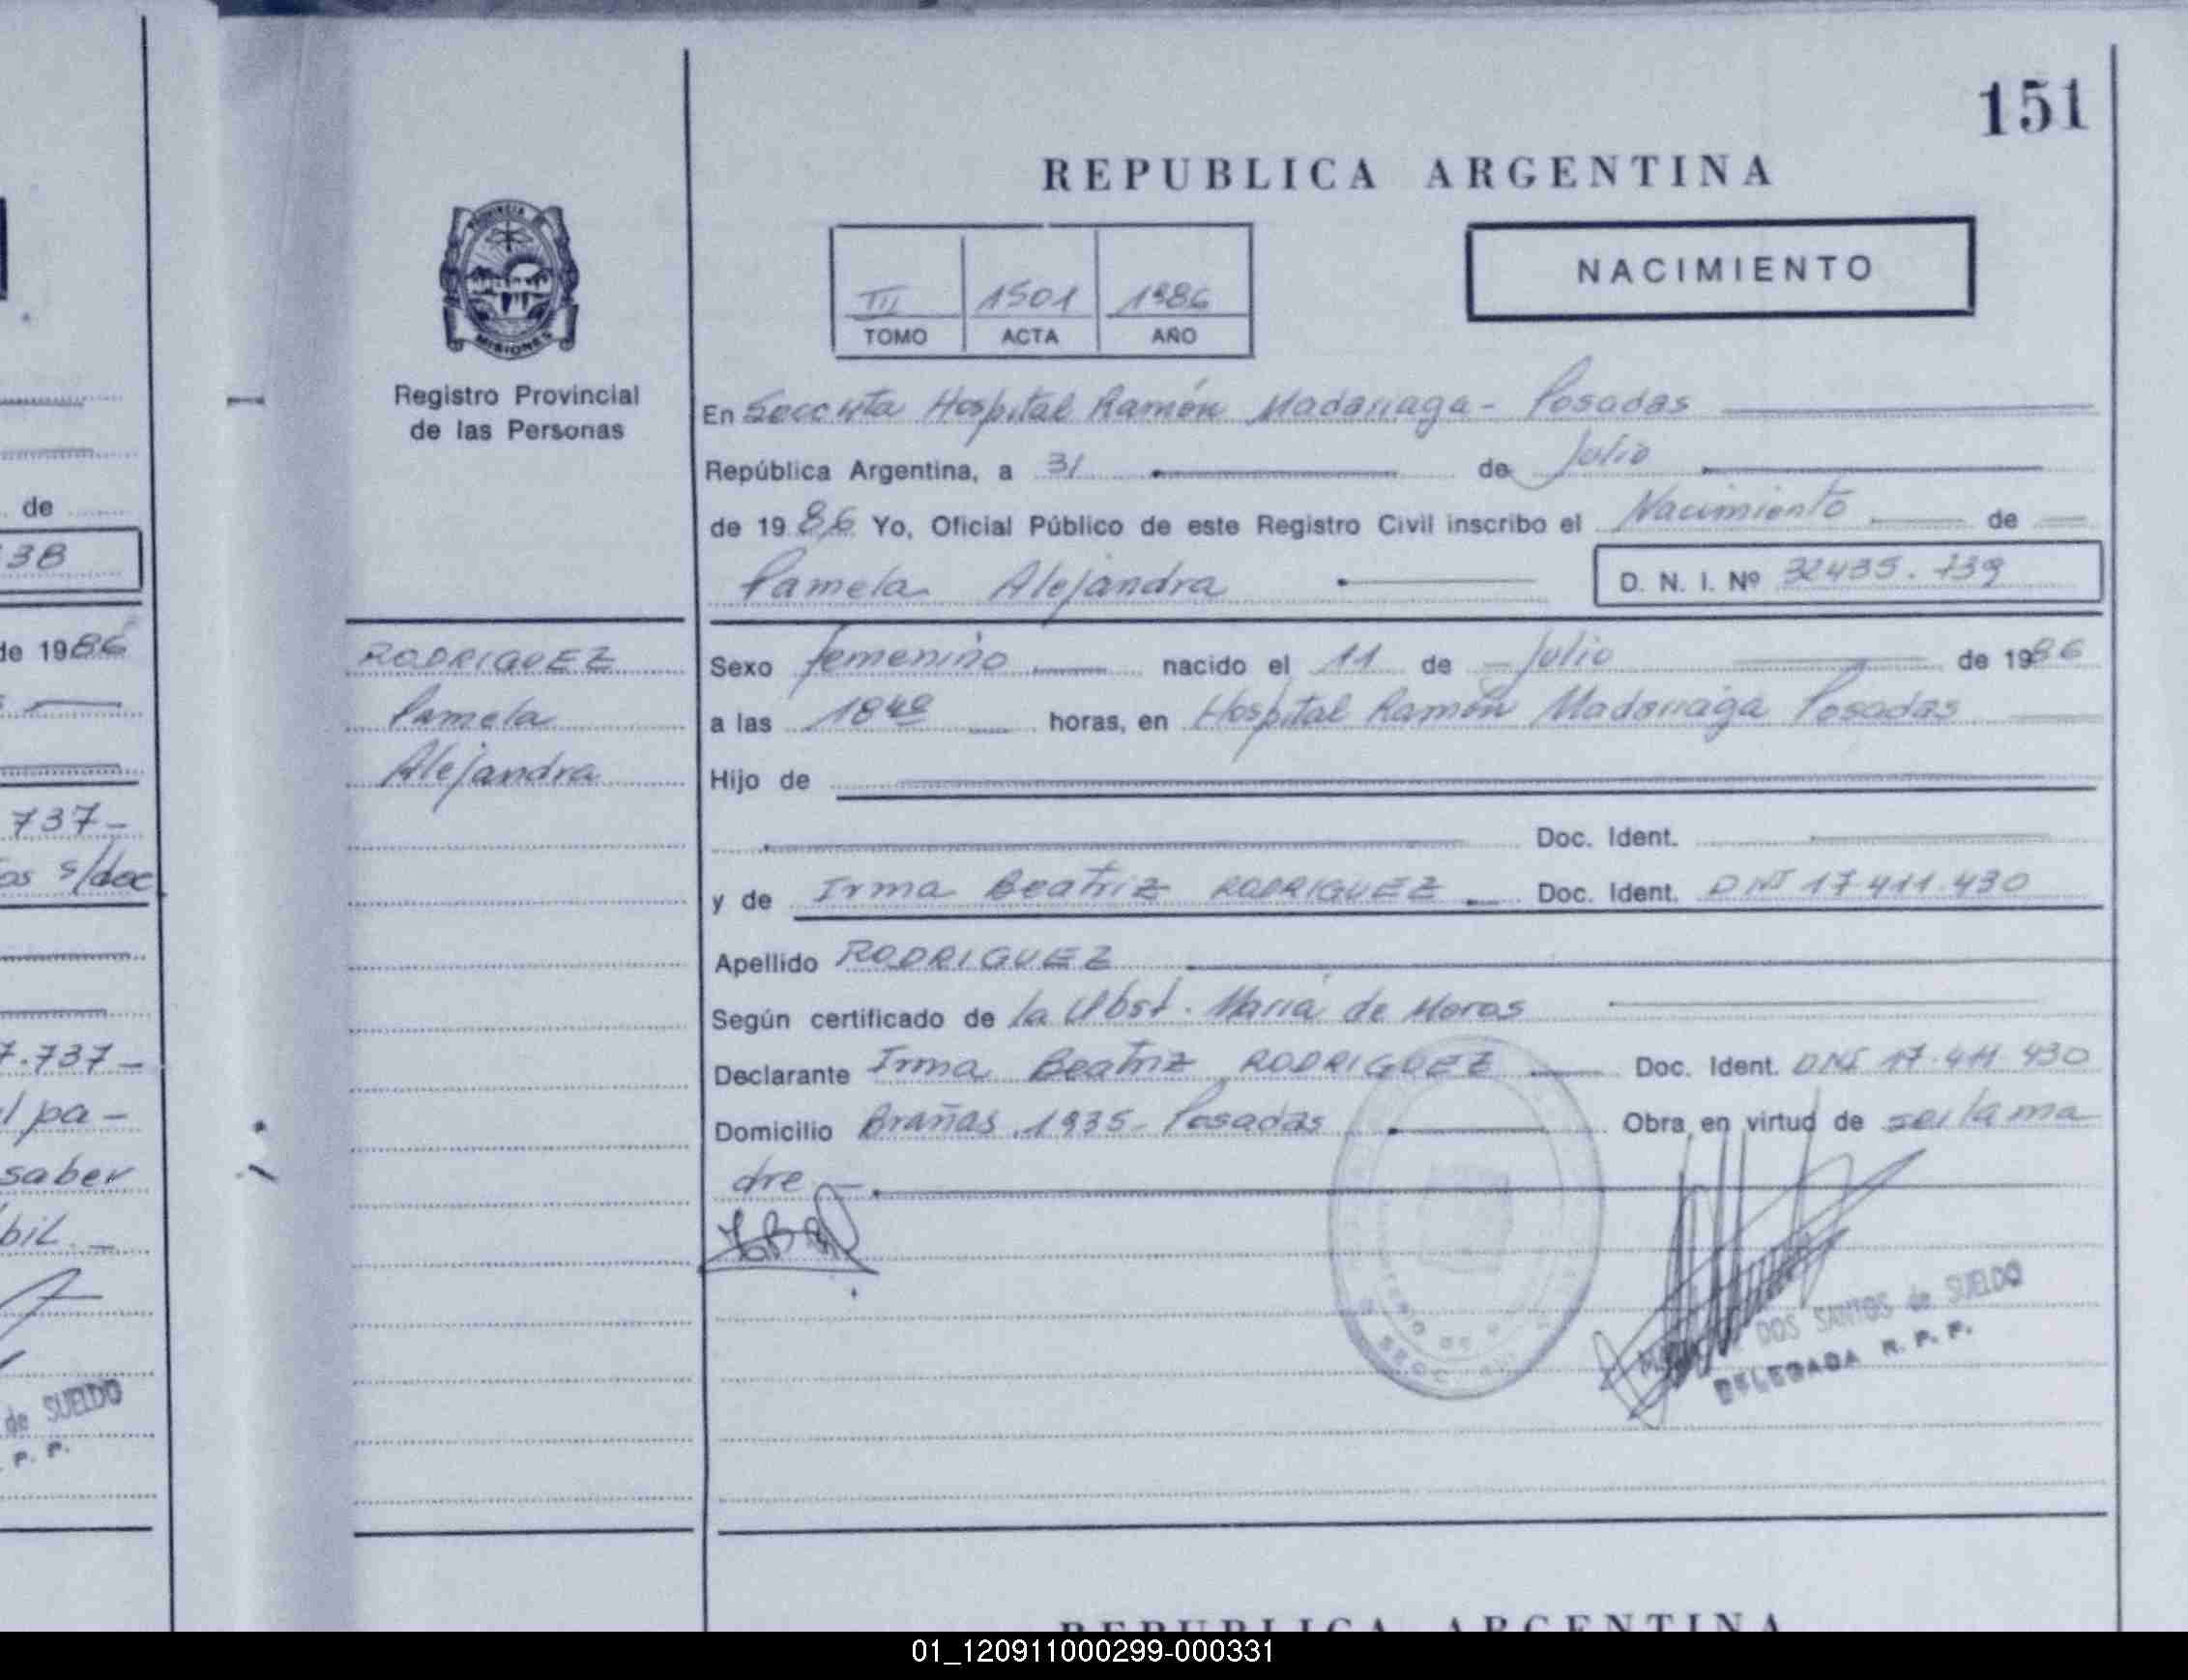 151
REPUBLICA ARGENTINA
NACIMIENTO
III 1501 1986
TOMO ACTA AÑO
PROVINCIA DE
MISIONES
Registro Provincial
de las Personas
En Hospital Ramón Madariaga - Posadas
República Argentina, a 31 de Julio
de 1986 Yo, Oficial Público de este Registro Civil inscribo el Nacimiento de
Pamela Alejandra D. N. I. Nº 32435.739
RODRIGUEZ
Pamela
Alejandra
Sexo femenino nacido el 11 de Julio de 1986
a las 1840 horas, en Hospital Ramón Madariaga Posadas
Hijo de
Doc. Ident.
y de Irma Beatriz RODRIGUEZ Doc. Ident. DNI 17.411.430
Apellido RODRIGUEZ
Según certificado de la Obst. María de Moras
Declarante Irma Beatriz RODRIGUEZ Doc. Ident. DNI 17.411.430
Domicilio Brañas 1935 - Posadas Obra en virtud de ser la ma
dre
DOS SANTOS de SUELDO
DELEGADA R. P. P.
de
38
de 1986
737-
os s/doc
7.737-
l pa-
saber
bil.
de SUELDO
P. P.
REPUBLICA ARGENTINA
01_120911000299-000331